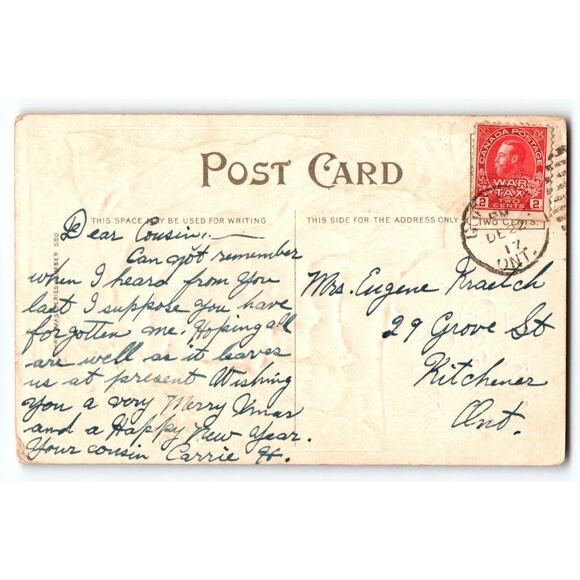 POST CARD
THIS SPACE MAY BE USED FOR WRITING
THIS SIDE FOR THE ADDRESS ONLY
CANADA POSTAGE
WAR
TAX
TWO
CENTS
2 2
TWO CENTS
PM
DE 22
17
ONT.
Dear Cousin,—
Can not remember
when I heard from you
last I suppose you have
forgotten me. Hoping all
are well as it leaves
us at present Wishing
you a very Merry Xmas
and a Happy New Year.
Your cousin Carrie H.
Mrs. Eugene Kraetch
29 Grove St
Kitchener
Ont.